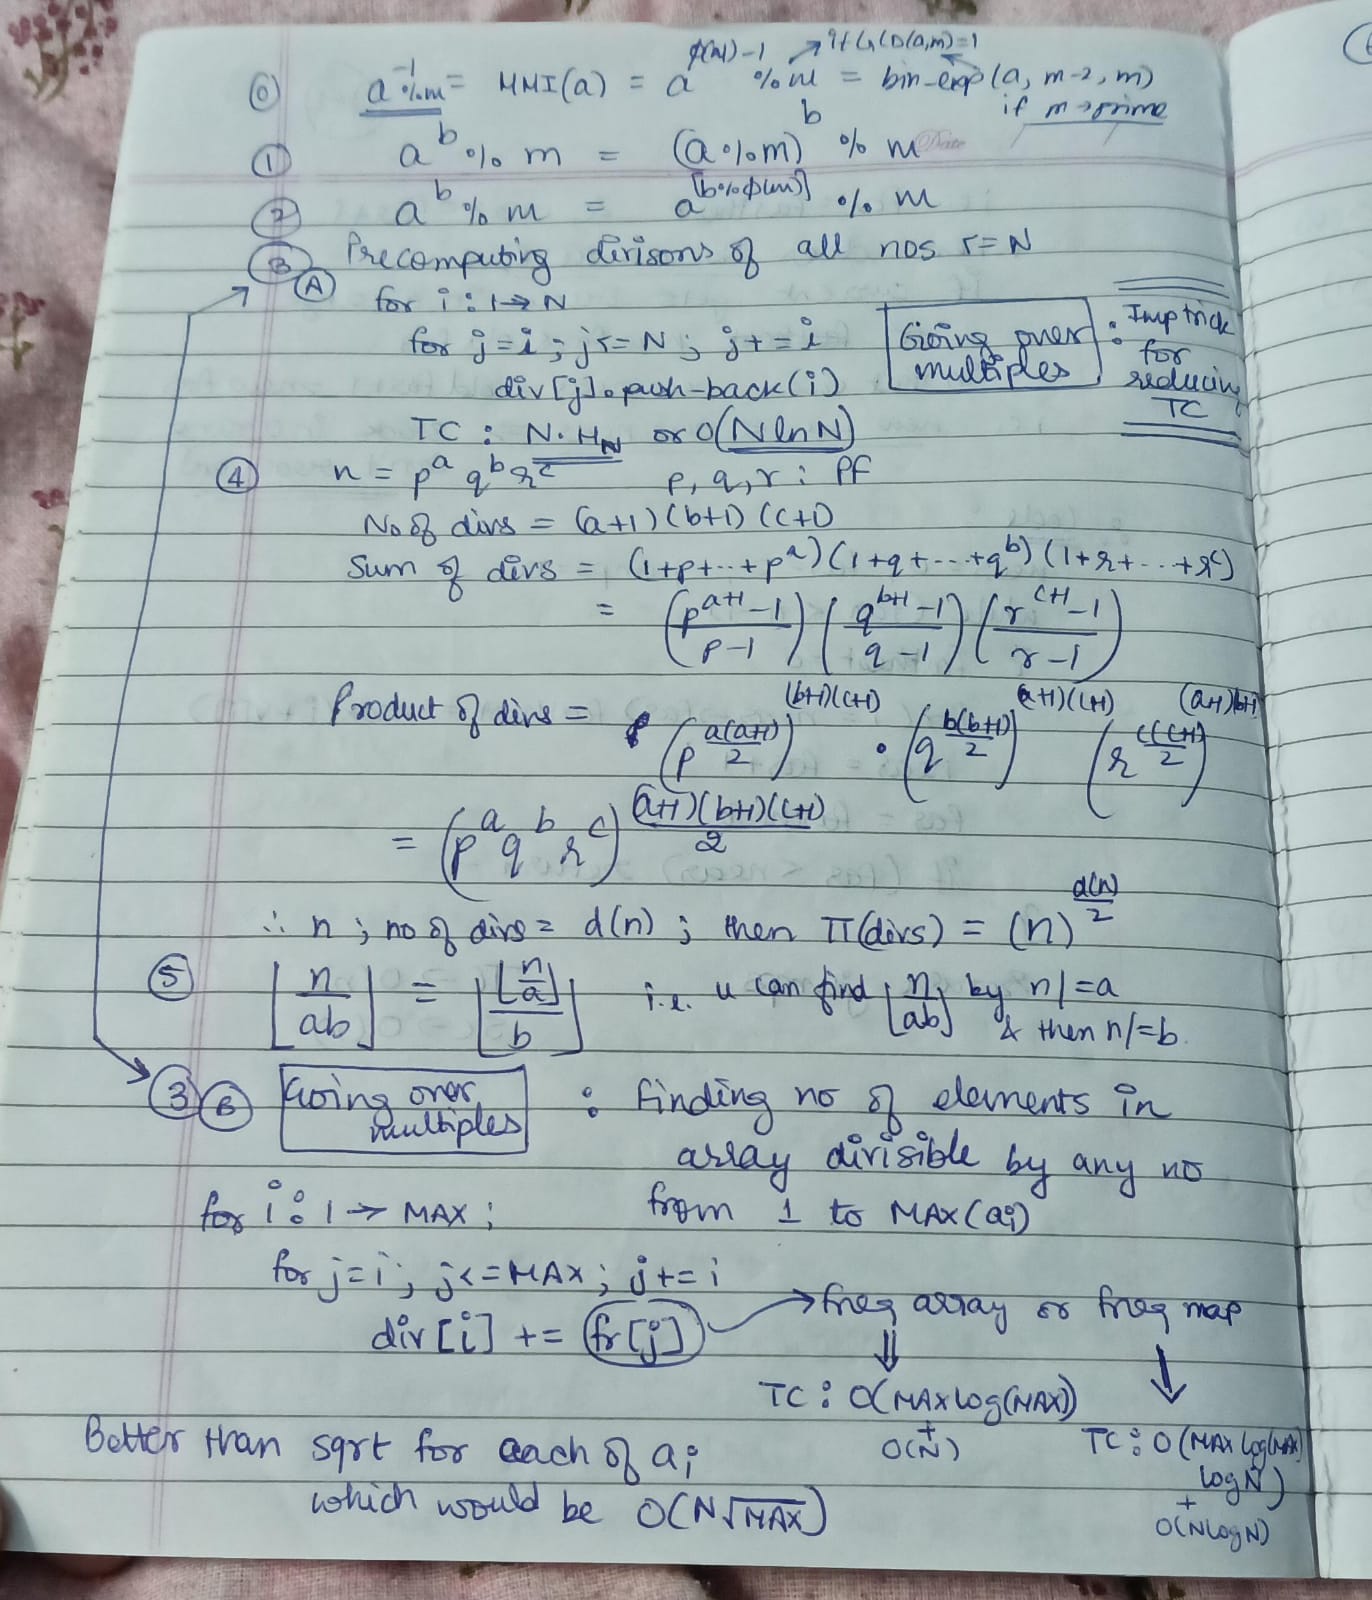 ⓪ a⁻¹ % m = MMI(a) = a^(φ(m)-1) % m → if GCD(a,m)=1 = bin-exp(a, m-2, m) if m → prime
① a^b % m = (a % m)^b % m
Date
② a^b % m = a^[b % φ(m)] % m
③ Precomputing divisons of all nos <= N
Ⓐ for i : 1 → N
for j = i ; j <= N ; j += i
div[j].push-back(i)
Going over multiples : Imp trick for reducing TC
TC : N·H_N or O(N ln N)
④ n = p^a q^b r^c p, q, r : PF
No of divs = (a+1)(b+1)(c+1)
Sum of divs = (1+p+...+p^a)(1+q+...+q^b)(1+r+...+r^c)
= ((p^(a+1) -1)/(p-1)) ((q^(b+1) -1)/(q-1)) ((r^(c+1) -1)/(r-1))
Product of divs = (p^(a(a+1)/2))^((b+1)(c+1)) · (q^(b(b+1)/2))^((a+1)(c+1)) (r^(c(c+1)/2))^((a+1)(b+1))
= (p^a q^b r^c)^((a+1)(b+1)(c+1)/2)
∴ n ; no of divs = d(n) ; then π(divs) = (n)^(d(n)/2)
⑤ ⌊n/ab⌋ = ⌊⌊n/a⌋/b⌋ i.e. u can find ⌊n/ab⌋ by n/=a & then n/=b.
③ Ⓑ Going over multiples : Finding no of elements in
array divisible by any no
from 1 to MAX(ai)
for i : 1 → MAX ;
for j = i ; j <= MAX ; j += i
div[i] += fr[j] → freq array or freq map
⇓ TC : O(MAX log(MAX)) + O(N)
↓ TC : O(MAX log(MAX) log N) + O(N log N)
Better than sqrt for each of ai
which would be O(N√MAX)